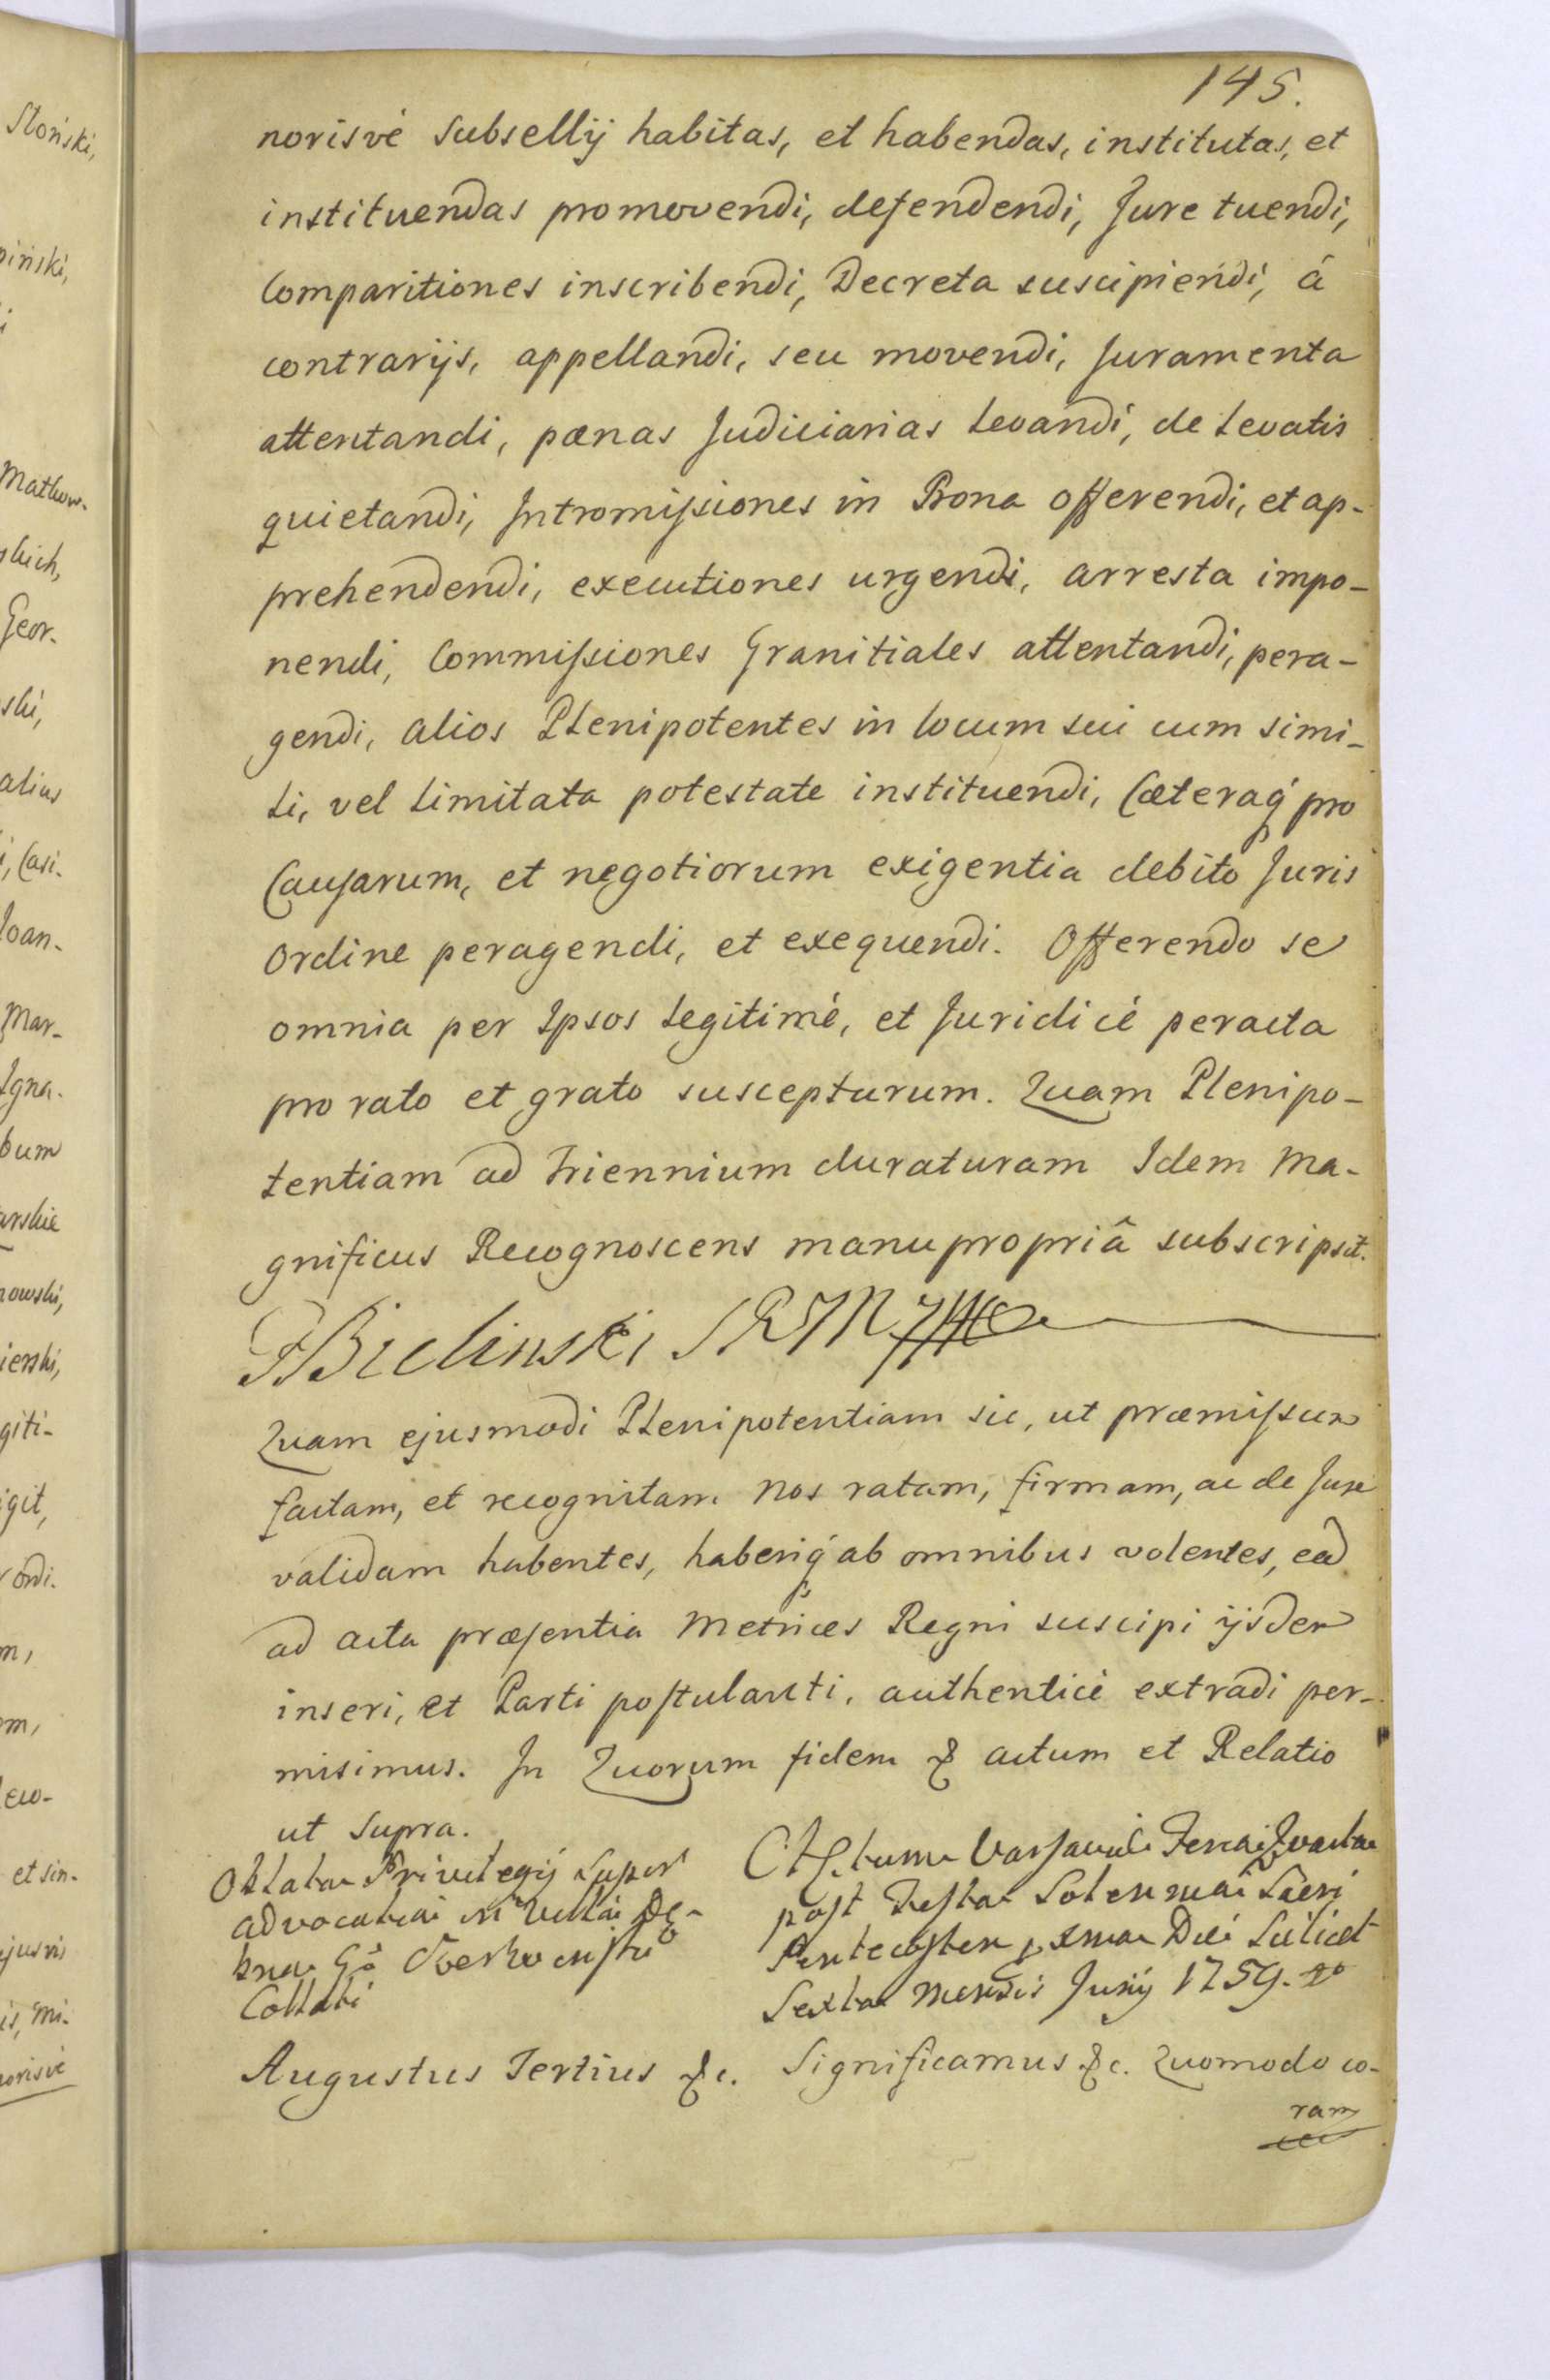 145.
norisvé Subsellij habitas, et habendas, institutas, et
instituendas promovendi, defendendi, Jure tuendi,
Comparitiones inscribendi, Decreta suscipiendi, â
contrarijs, appellandi, seu movendi, Juramenta
attentandi, pænas Judiciarias Levandi, de Levatis
quietandi, Intromissiones in Bona Offerendi, et ap-
prehendendi, executiones urgendi, arresta impo-
nendi, Commissiones Granitiales attentandi, pera-
gendi, alios Plenipotentes in locum sui cum simi-
li, vel Limitata potestate instituendi, Cæteraq́ pro
Causarum, et negotiorum exigentia debito Juris
Ordine peragendi, et exequendi. Offerendo se
omnia per Ipsos Legitimé, et Juridicé peracta
pro rato et grato suscepturum. Quam Plenipo-
tentiam ad triennium duraturam Idem Ma-
gnificus Recognoscens manu propriâ subscripsit.
FBielinski
Quam ejusmodi Plenipotentiam sic, ut præmissum
factam, et recognitam Nos ratam, firmam, ac de Jure
validam habentes, haberiq́ ab omnibus volentes, ead
ad acta præsentia Metrices Regni suscipi ijsdem
inseri, et Parti postulanti, authenticé extradi per-
misimus. In Quorum fidem & actum et Relatio
ut Supra.
Oblata Privilegij Super
advocatiai in Villa
Collati
Varsaviæ Feria Quarta
post Festa Solennia Sacri
Pentecosten pxma Die Scilicet
Sexta Mensis Junij 1759.
Augustus Tertius &c. Significamus &c. Quomodo co-
ram
Sloński,
piński,
Mathew.
skich,
Geor.
ski,
alius
i, Casi.
Joan-
Mar-
Igna.
bum
arskie
nowski,
ierski,
giti-
igit,
ordi.
m,
om,
lew-
et sin-
ejusvis
is, mi-
norisvé